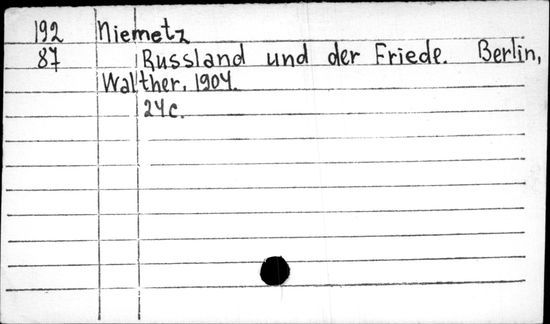 192 Niemetz
87 Russland und der Friede. Berlin,
Walther, 1904.
24c.